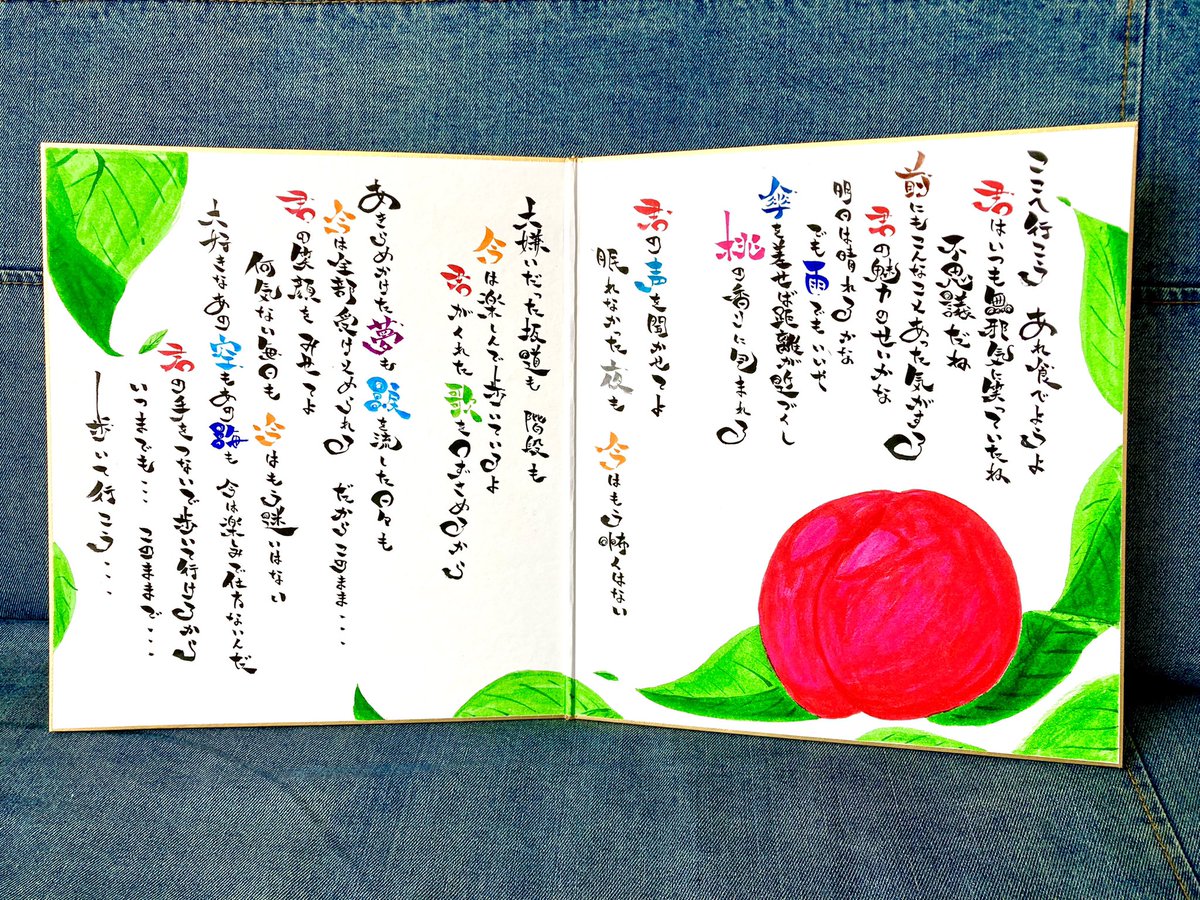 ここへ行こう あれ食べようよ
君はいつも無邪気に笑っていたね
不思議だね
前にもこんなことあった気がする
君の魅力のせいかな
明日は晴れるかな
でも雨でもいいや
傘を差せば距離が近づくし
桃の香りに包まれる
君の声を聞かせてよ
眠れなかった夜も 今はもう怖くはない
大嫌いだった坂道も 階段も
今は楽しんで歩いているよ
君がくれた歌を口ずさめるから
あきらめかけた夢も 涙を流した日々も
今は全部受け止められる だからこのまま・・・
君の笑顔を みせてよ
何気ない毎日も 今はもう迷いはない
大好きなあの空もあの海も 今は楽しみで仕方ないんだ
君の手をつないで歩いて行けるから
いつまでも・・・ このままで・・・
歩いて行こう・・・